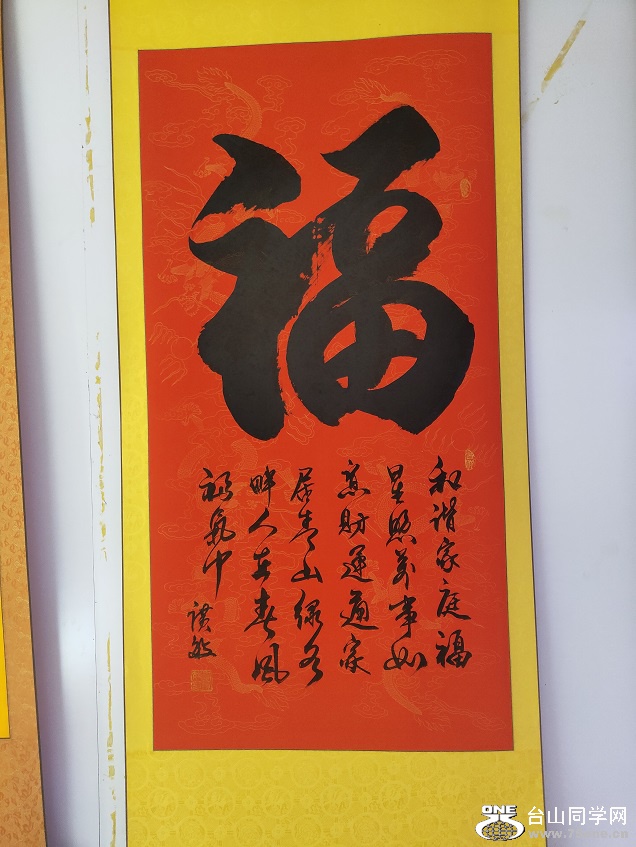 福
和谐家庭福
星照萬事如
意财運通家
居青山绿水
畔人在春风
福氣中
ONE
台山同学网